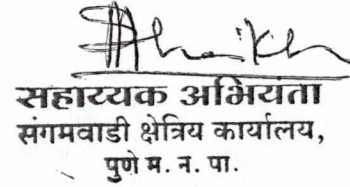 सहाय्यक अभियंता
संगमवाडी क्षेत्रिय कार्यालय,
पुणे म. न. पा.